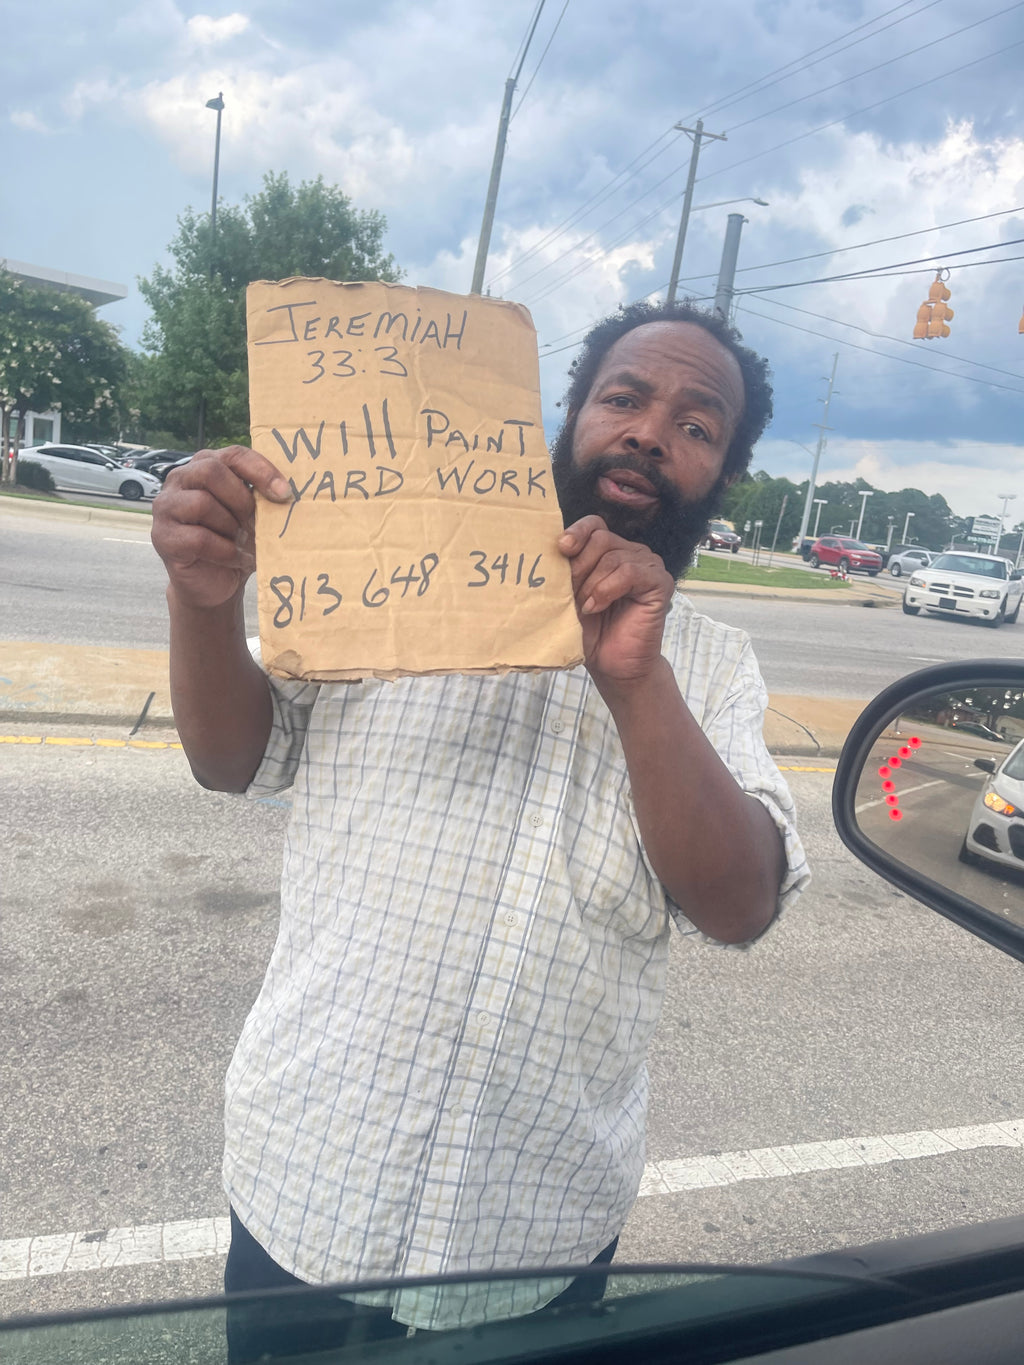 JEREMIAH
33:3
Will PAINT
YARD WORK
813 648 3416